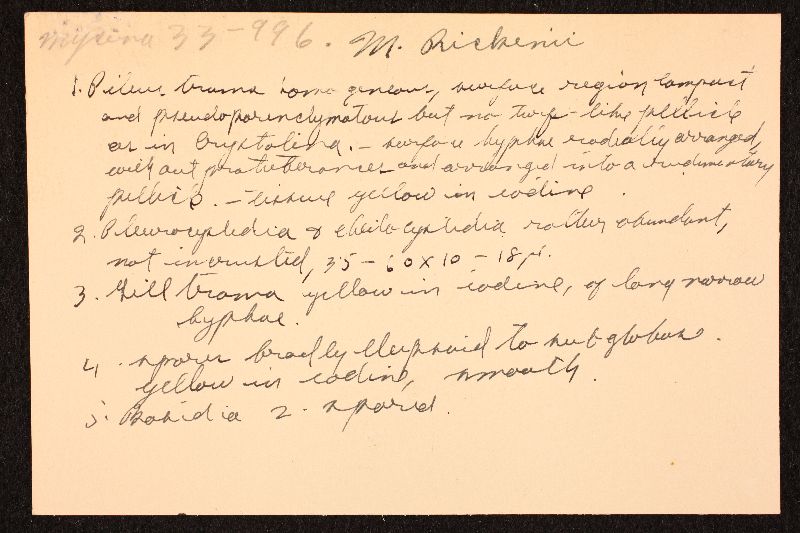 Mycena 33-996. M. Rickenii
1. Pileus trama homogeneous, surface region compact
and pseudoparenchymatous but no turf-like pellicle
as in Crystolina. - surface hyphae radially arranged,
without protuberances and arranged into a rudimentary
pellicle. - tissue yellow in iodine.
2. Pleurocystidia & cheilocystidia rather abundant,
not incrusted, 35-60 x 10-18 µ.
3. Gill trama yellow in iodine, of long narrow
hyphae.
4. spores broadly ellipsoid to subglobose.
yellow in iodine, smooth.
5. Basidia 2-spored.